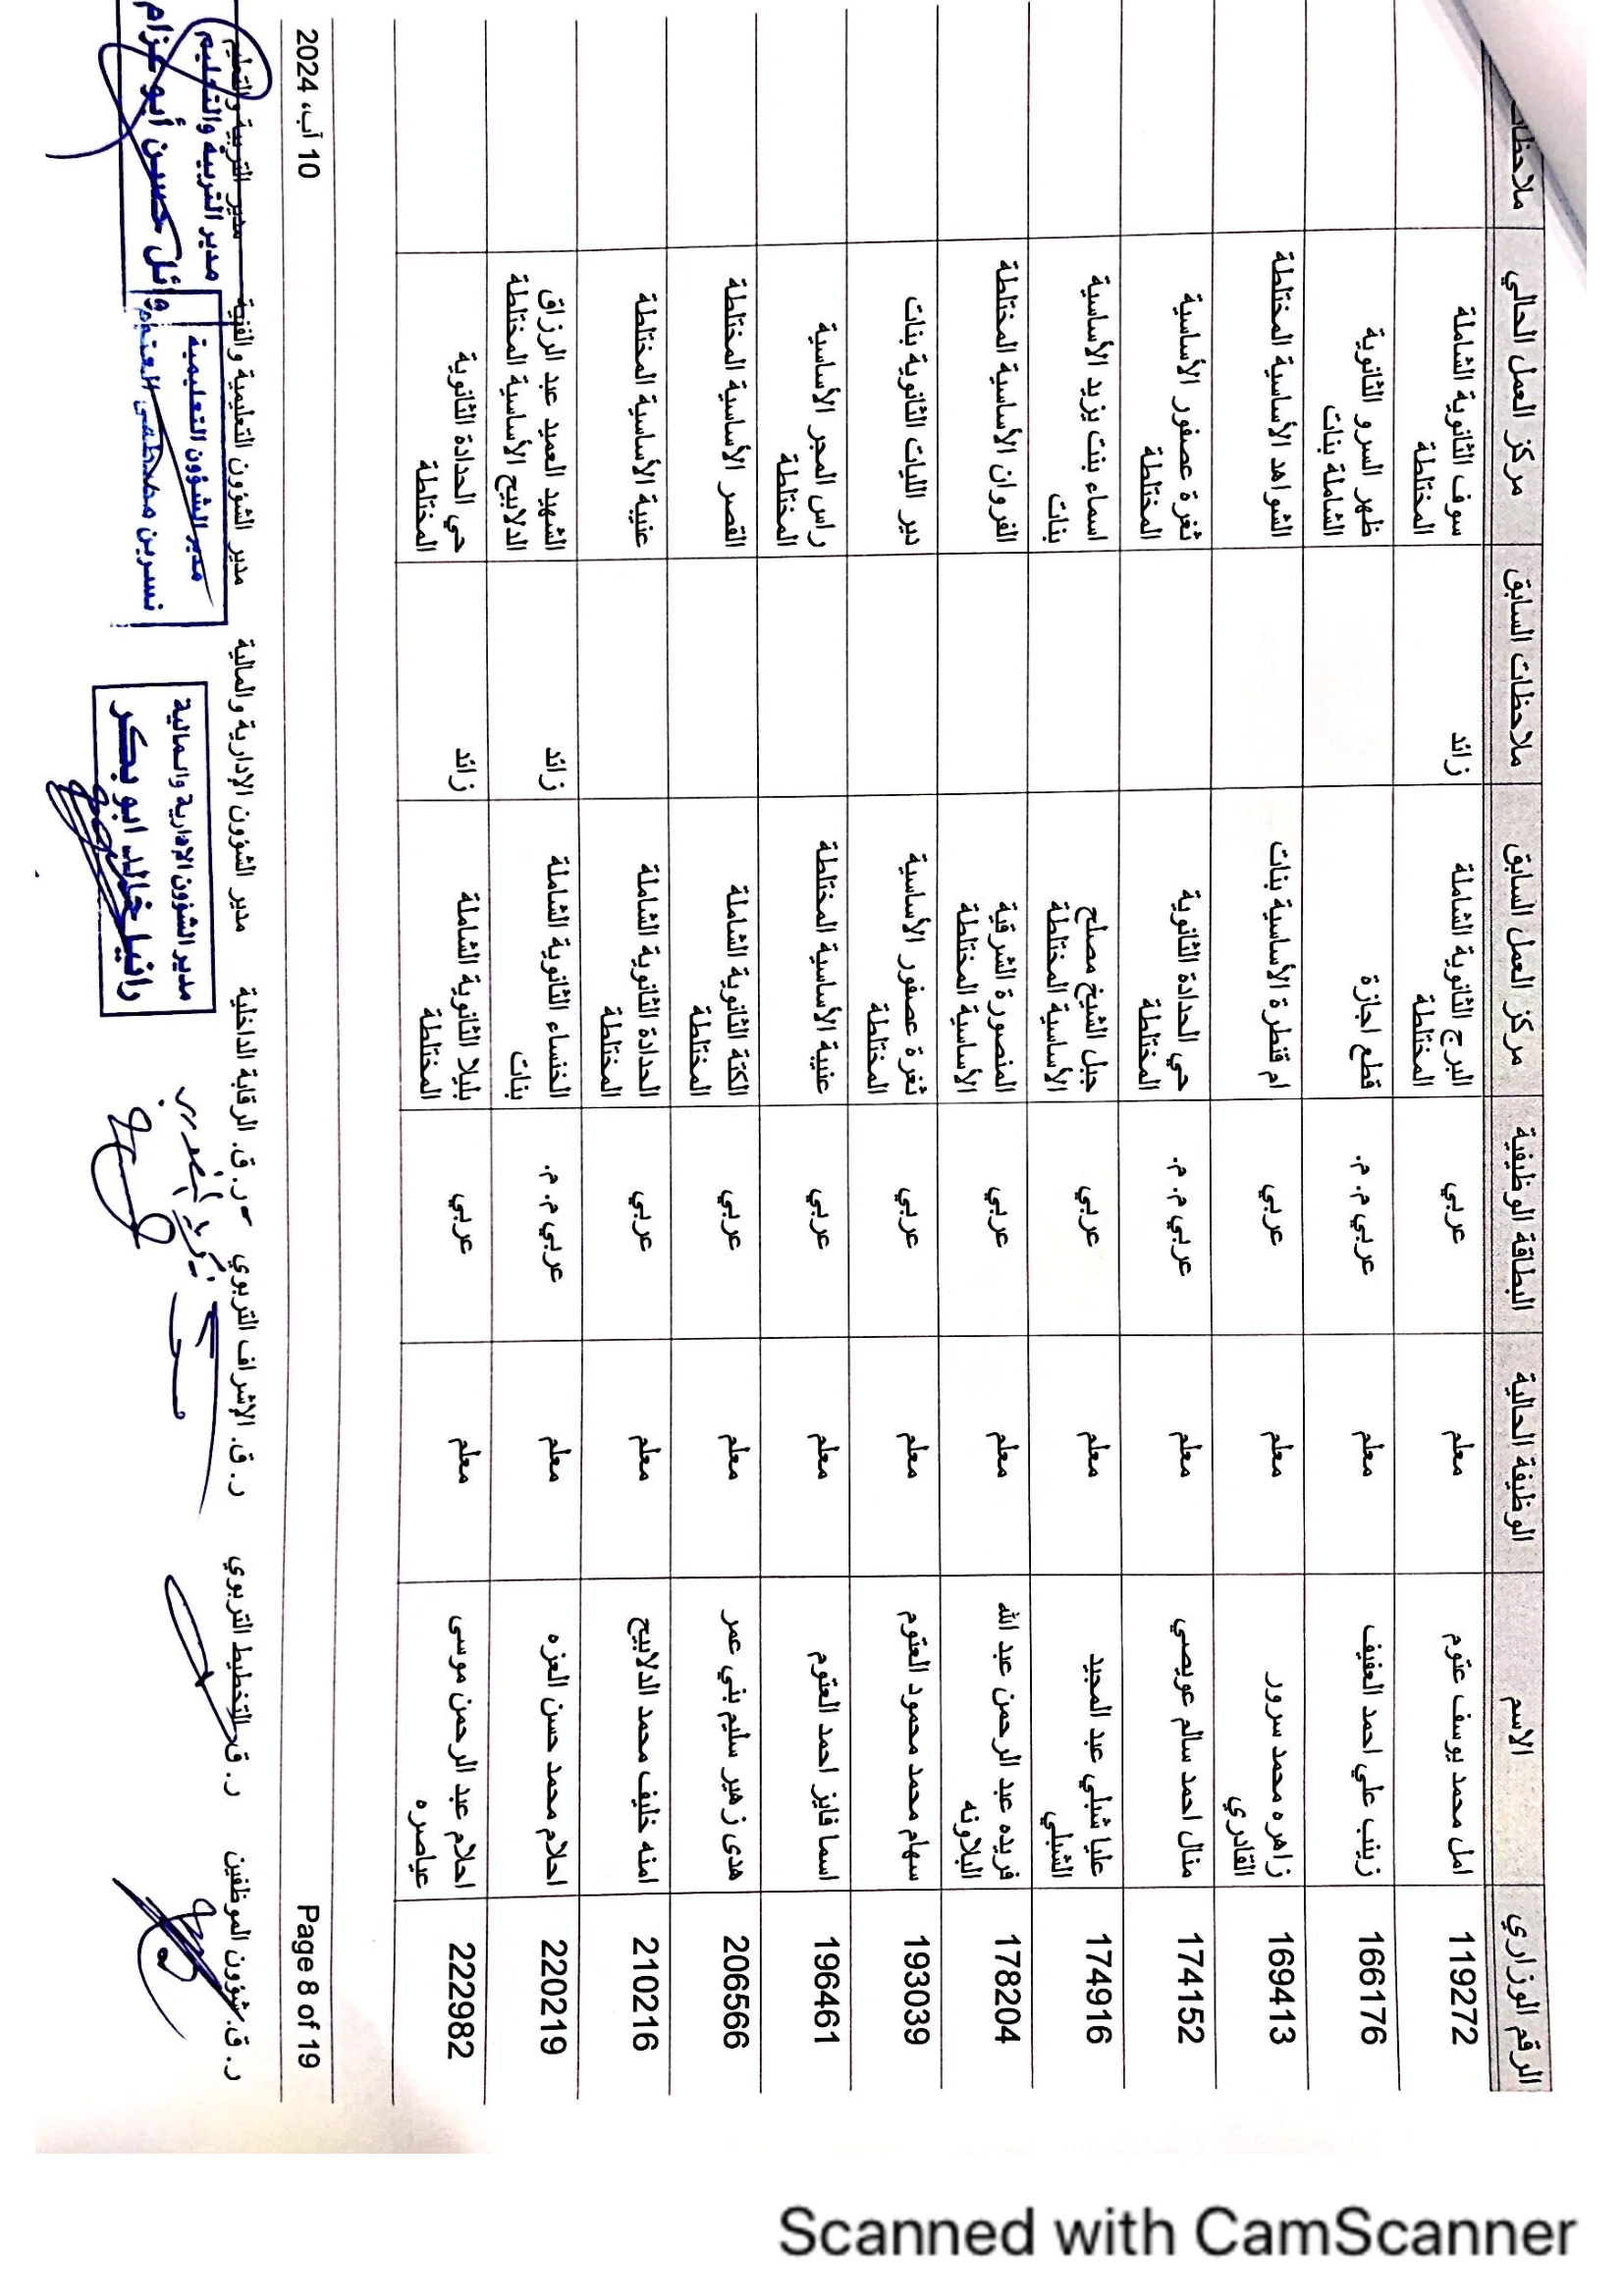 الرقم الوزاري الاسم الوظيفة الحالية البطاقة الوظيفية مركز العمل السابق ملاحظات السابق مركز العمل الحالي
119272 امل محمد يوسف عتوم معلم عربي البرج الثانوية الشاملة زائد سوف الثانوية الشاملة
المختلطة المختلطة
166176 زينب علي احمد العفيف معلم عربي م.م. قطع اجازة ظهر السرو الثانوية
الشاملة بنات
169413 زاهره محمد سرور معلم عربي ام قنطرة الأساسية بنات الشواهد الأساسية المختلطة
القادري
174152 منال احمد سالم عويصي معلم عربي م.م. حي الحدادة الثانوية ثغرة عصفور الأساسية
المختلطة المختلطة
174916 عليا شبلي عبد المجيد معلم عربي جبل الشيخ مصلح اسماء بنت يزيد الأساسية
الشبلي الأساسية المختلطة بنات
178204 فريده عبد الرحمن عبد الله معلم عربي المنصورة الشرقية الفروان الأساسية المختلطة
البلاونه الأساسية المختلطة
193039 سهام محمد محمود العتوم معلم عربي ثغرة عصفور الأساسية دير الليات الثانوية بنات
المختلطة
196461 اسما فايز احمد العتوم معلم عربي عنيبة الأساسية المختلطة راس المجر الأساسية
المختلطة
206566 هدى زهير سليم بني عمر معلم عربي الكتة الثانوية الشاملة القصر الأساسية المختلطة
المختلطة
210216 امنه خليف محمد الدلابيح معلم عربي الحدادة الثانوية الشاملة عنيبة الأساسية المختلطة
المختلطة
220219 احلام محمد حسن العزه معلم عربي م.م. الخنساء الثانوية الشاملة زائد الشهيد العميد عبد الرزاق
بنات الدلابيح الأساسية المختلطة
222982 احلام عبد الرحمن موسى معلم عربي بليلا الثانوية الشاملة زائد حي الحدادة الثانوية
عياصره المختلطة المختلطة
Page 8 of 19 10 آب، 2024
ر.ق. شؤون الموظفين ر.ق. التخطيط التربوي ر.ق. الإشراف التربوي ر.ق. الرقابة الداخلية مدير الشؤون الإدارية والمالية مدير الشؤون التعليمية والفنية مدير التربية والتعليم
مدير الشؤون الإدارية والمالية
رانيا خالد ابو بكر
مدير الشؤون التعليمية
نسرين مصطفى العتوم
مدير التربية والتعليم
وائل حسين أبو عزام
Scanned with CamScanner